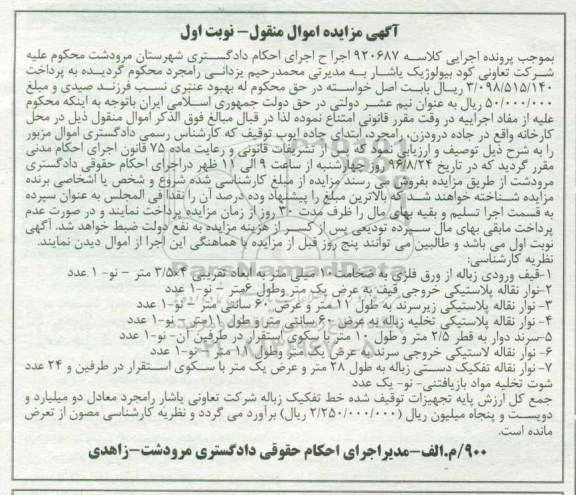 آگهی مزایده اموال منقول- نوبت اول
بموجب پرونده اجرایی کلاسه ۹۲۰۶۸۷ اجرا ح اجرای احکام دادگستری شهرستان مرودشت محکوم علیه
شرکت تعاونی کود بیولوژیک یاشار به مدیرتی محمدرحیم یزدانی رامجرد محکوم گردیده به پرداخت
۳/۰۹۸/۵۱۵/۱۴۰ ریال بابت اصل خواسته در حق محکوم له بهبود عنبری نسب فرزند صیدی و مبلغ
۵۰/۰۰۰/۰۰۰ ریال به عنوان نیم عشر دولتی در حق دولت جمهوری اسلامی ایران باتوجه به اینکه محکوم
علیه از مفاد اجراییه در وقت مقرر قانونی امتناع نموده لذا در قبال مبالغ فوق الذکر اموال منقول ذیل در محل
کارخانه واقع در جاده درودزن، رامجرد، ابتدای جاده ایوب توقیف که کارشناس رسمی دادگستری اموال مزبور
را به شرح ذیل توصیف و ارزیابی نمود که پس از تشریفات قانونی و رعایت ماده ۷۵ قانون اجرای احکام مدنی
مقرر گردید که در تاریخ ۹۶/۸/۲۴ روز چهارشنبه از ساعت ۹ الی ۱۱ ظهر دراجرای احکام حقوقی دادگستری
مرودشت از طریق مزایده بفروش می رسند مزایده از مبلغ کارشناسی شده شروع و شخص یا اشخاصی برنده
مزایده شناخته خواهند شد که بالاترین مبلغ را پیشنهاد وده درصد آن را نقدا فی المجلس به عنوان سپرده
به قسمت اجرا تسلیم و بقیه بهای مال را ظرف مدت ۳۰ روز از زمان مزایده پرداخت نمایند و در صورت عدم
پرداخت مابقی بهای مال سپرده تودیعی پس از کسر از هزینه مزایده به نفع دولت ضبط خواهد شد. آگهی
نوبت اول می باشد و طالبین می توانند پنج روز قبل از مزایده با هماهنگی این اجرا از اموال دیدن نمایند.
نظریه کارشناسی:
۱-قیف ورودی زباله از ورق فلزی به ضخامت ۱۰ میلی متر به ابعاد تقریبی ۴×۳/۵ متر – نو- ۱ عدد
۲-نوار نقاله پلاستیکی خروجی قیف به عرض یک متر وطول ۶متر – نو-۱ عدد
۳- نوار نقاله پلاستیکی زیرسرند به طول ۱۱ متر و عرض ۶۰ سانتی متر – نو-۱ عدد
۴- نوار نقاله پلاستیکی تخلیه زباله به عرض ۶۰ سانتی متر و طول ۱۱متر – نو-۱ عدد
۵-سرند دوار به قطر ۲/۵ متر و طول ۱۰ متر با سکوی استقرار در طرفین آن- نو-۱ عدد
۶- نوار نقاله لاستیکی خروجی سرند به عرض یک متر وطول ۱۸ متر- نو-۱ عدد
۷- نوار نقاله تفکیک دستی زباله به طول ۲۸ متر و عرض یک متر با سکوی استقرار در طرفین و ۲۴ عدد
شوت تخلیه مواد بازیافتنی- نو- یک عدد
جمع کل ارزش پایه تجهیزات توقیف شده خط تفکیک زباله شرکت تعاونی یاشار رامجرد معادل دو میلیارد و
دویست و پنجاه میلیون ریال (۲/۲۵۰/۰۰۰/۰۰۰ ریال) برآورد می گردد و نظریه کارشناسی مصون از تعرض
مانده است.
۹۰۰/م.الف-مدیراجرای احکام حقوقی دادگستری مرودشت-زاهدی